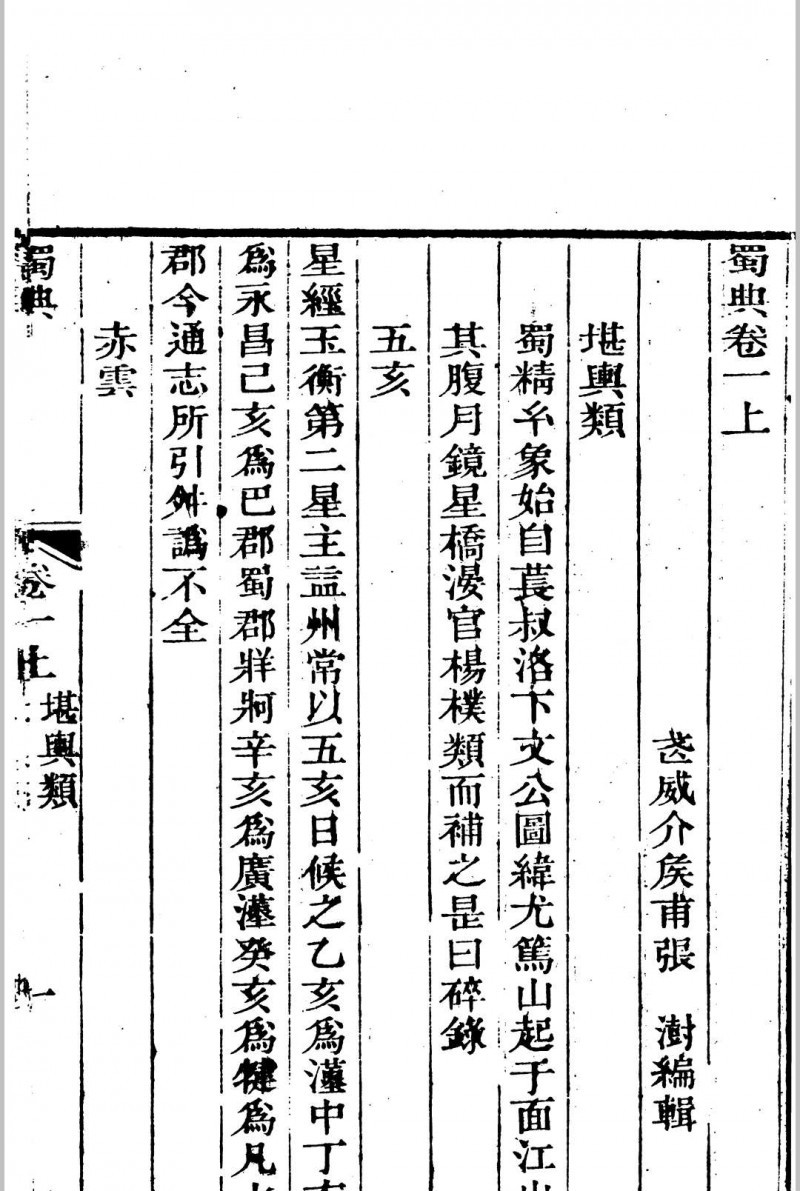 蜀典卷一上
武威介矦甫張 澍編輯
堪輿類
蜀精允象始自萇叔洛下文公圖緯尤篤山起于面江出
其腹月鏡星橋漫官楊樸類而補之是曰碎錄
五亥
星經玉衡第二星主益州常以五亥日候之乙亥為漢中丁亥
為永昌己亥為巴郡蜀郡牂牁辛亥為廣漢癸亥為犍為凡
郡今通志所引舛譌不全
赤雲
蜀典
卷一上
堪輿類
一